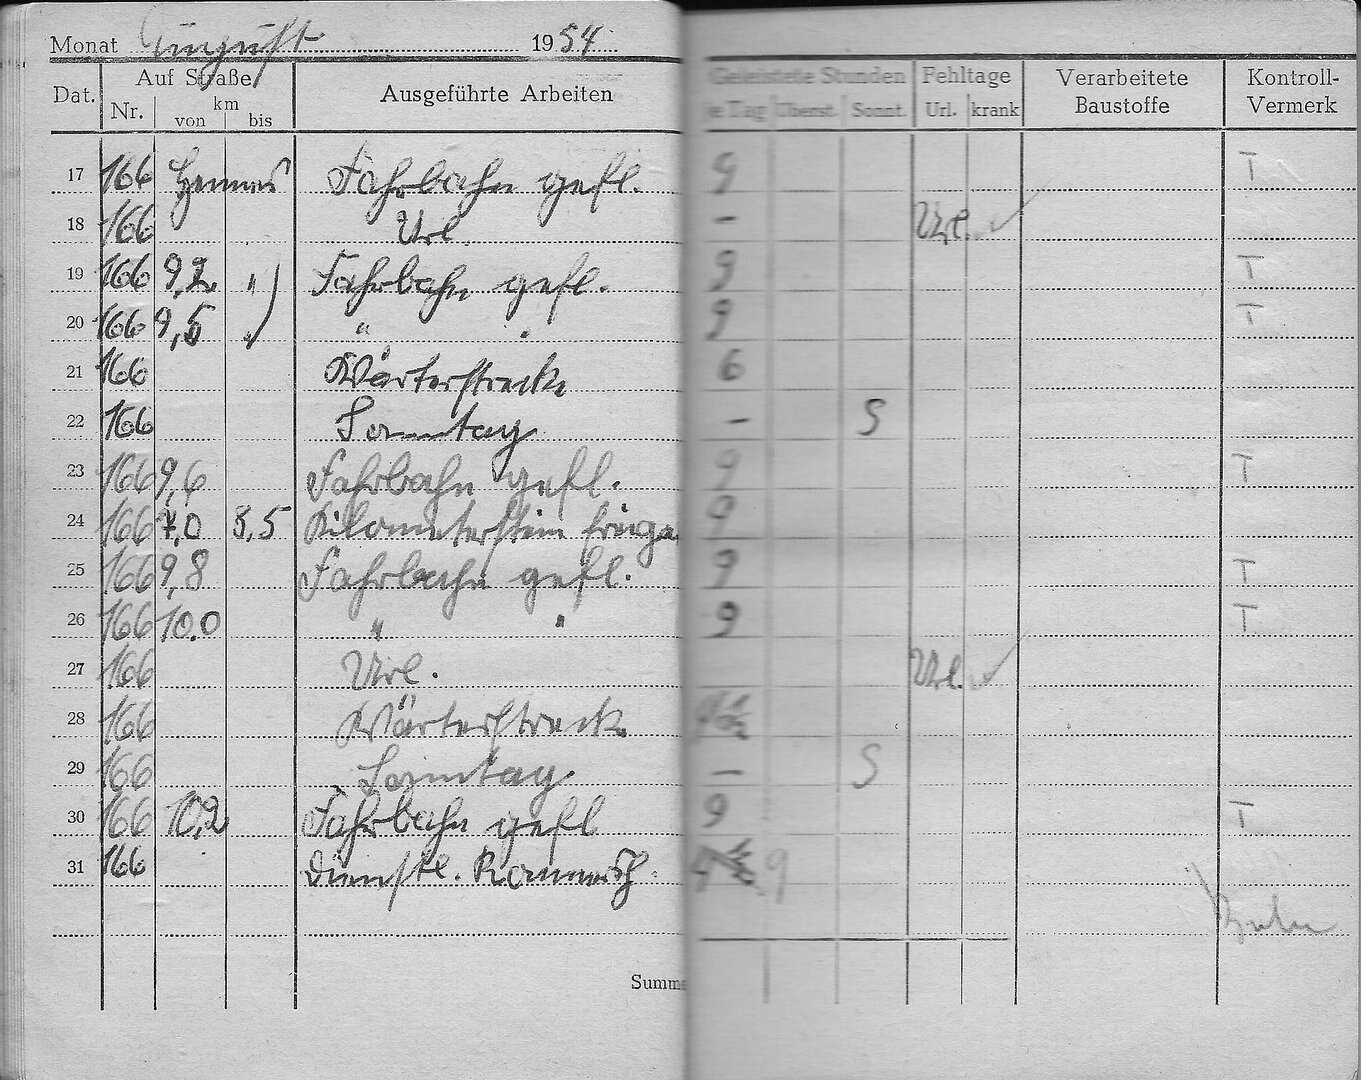 Monat August 1954
Dat. Auf Straße Ausgeführte Arbeiten Geleistete Stunden Fehltage Verarbeitete Baustoffe Kontroll-Vermerk
Nr. km von bis je Tag Überst. Sonnt. Url. krank
17 166 Fahrbahn gefl. 9 T
18 166 Url. - Url. ✓
19 166 9,2 " Fahrbahn gefl. 9 T
20 166 9,5 " " " 9 T
21 166 Wärterstrecke 6
22 166 Sonntag - S
23 166 9,6 Fahrbahn gefl. 9 T
24 166 7,0 8,5 Kilometerstein 9
25 166 9,8 Fahrbahn gefl. 9 T
26 166 10.0 " " 9 T
27 166 Url. Url. ✓
28 166 Wärterstrecke
29 166 Sonntag - S
30 166 10,2 Fahrbahn gefl 9 T
31 166 Dienstl. 9
Summe